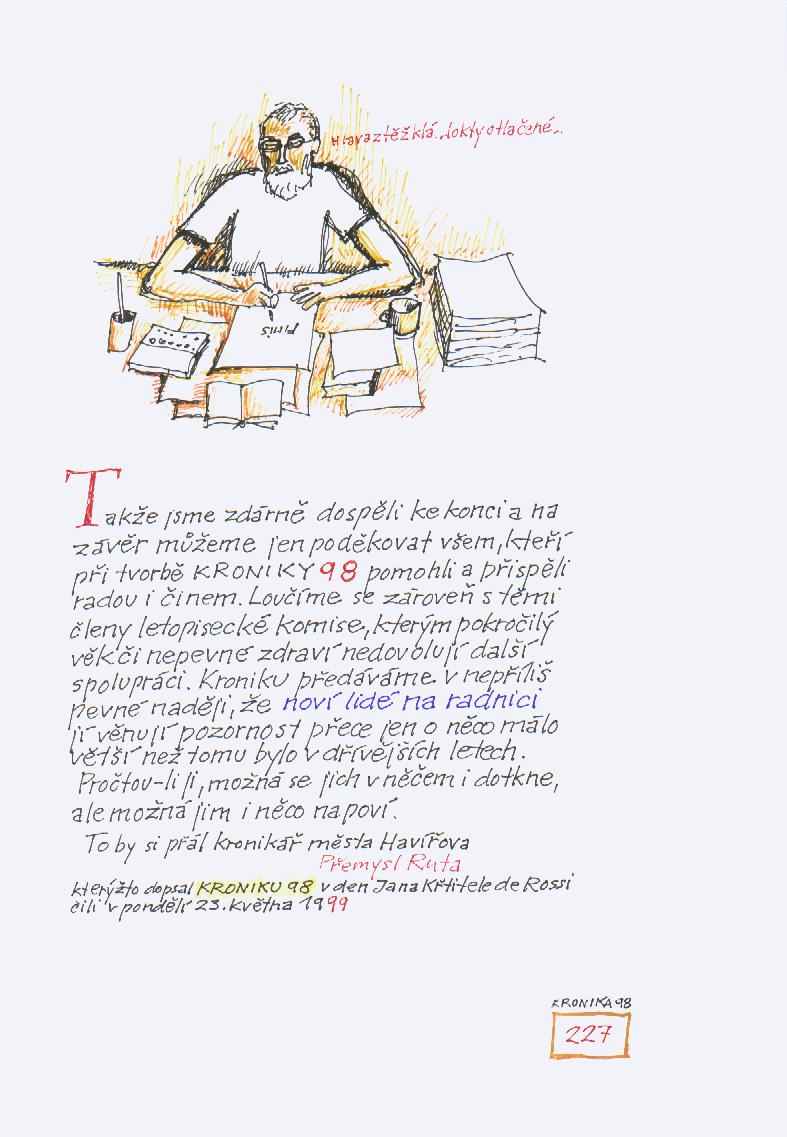 Hlava ztěžklá, lokty otlačené..
FINIS
Takže jsme zdárně dospěli ke konci a na
závěr můžeme jen poděkovat všem, kteří
při tvorbě KRONIKY 98 pomohli a přispěli
radou i činem. Loučíme se zároveň s těmi
členy letopisecké komise, kterým pokročilý
věk či nepevné zdraví nedovolují další
spolupráci. Kroniku předáváme v nepříliš
pevné naději, že noví lidé na radnici
jí věnují pozornost přece jen o něco málo
větší než tomu bylo v dřívějších letech.
Pročtou-li ji, možná se jich v něčem i dotkne,
ale možná jim i něco napoví.
To by si přál kronikář města Havířova
Přemysl Ruta
kterýžto dopsal KRONIKU 98 v den Jana Křtitele de Rossi
čili v pondělí 23. května 1999
KRONIKA 98
227